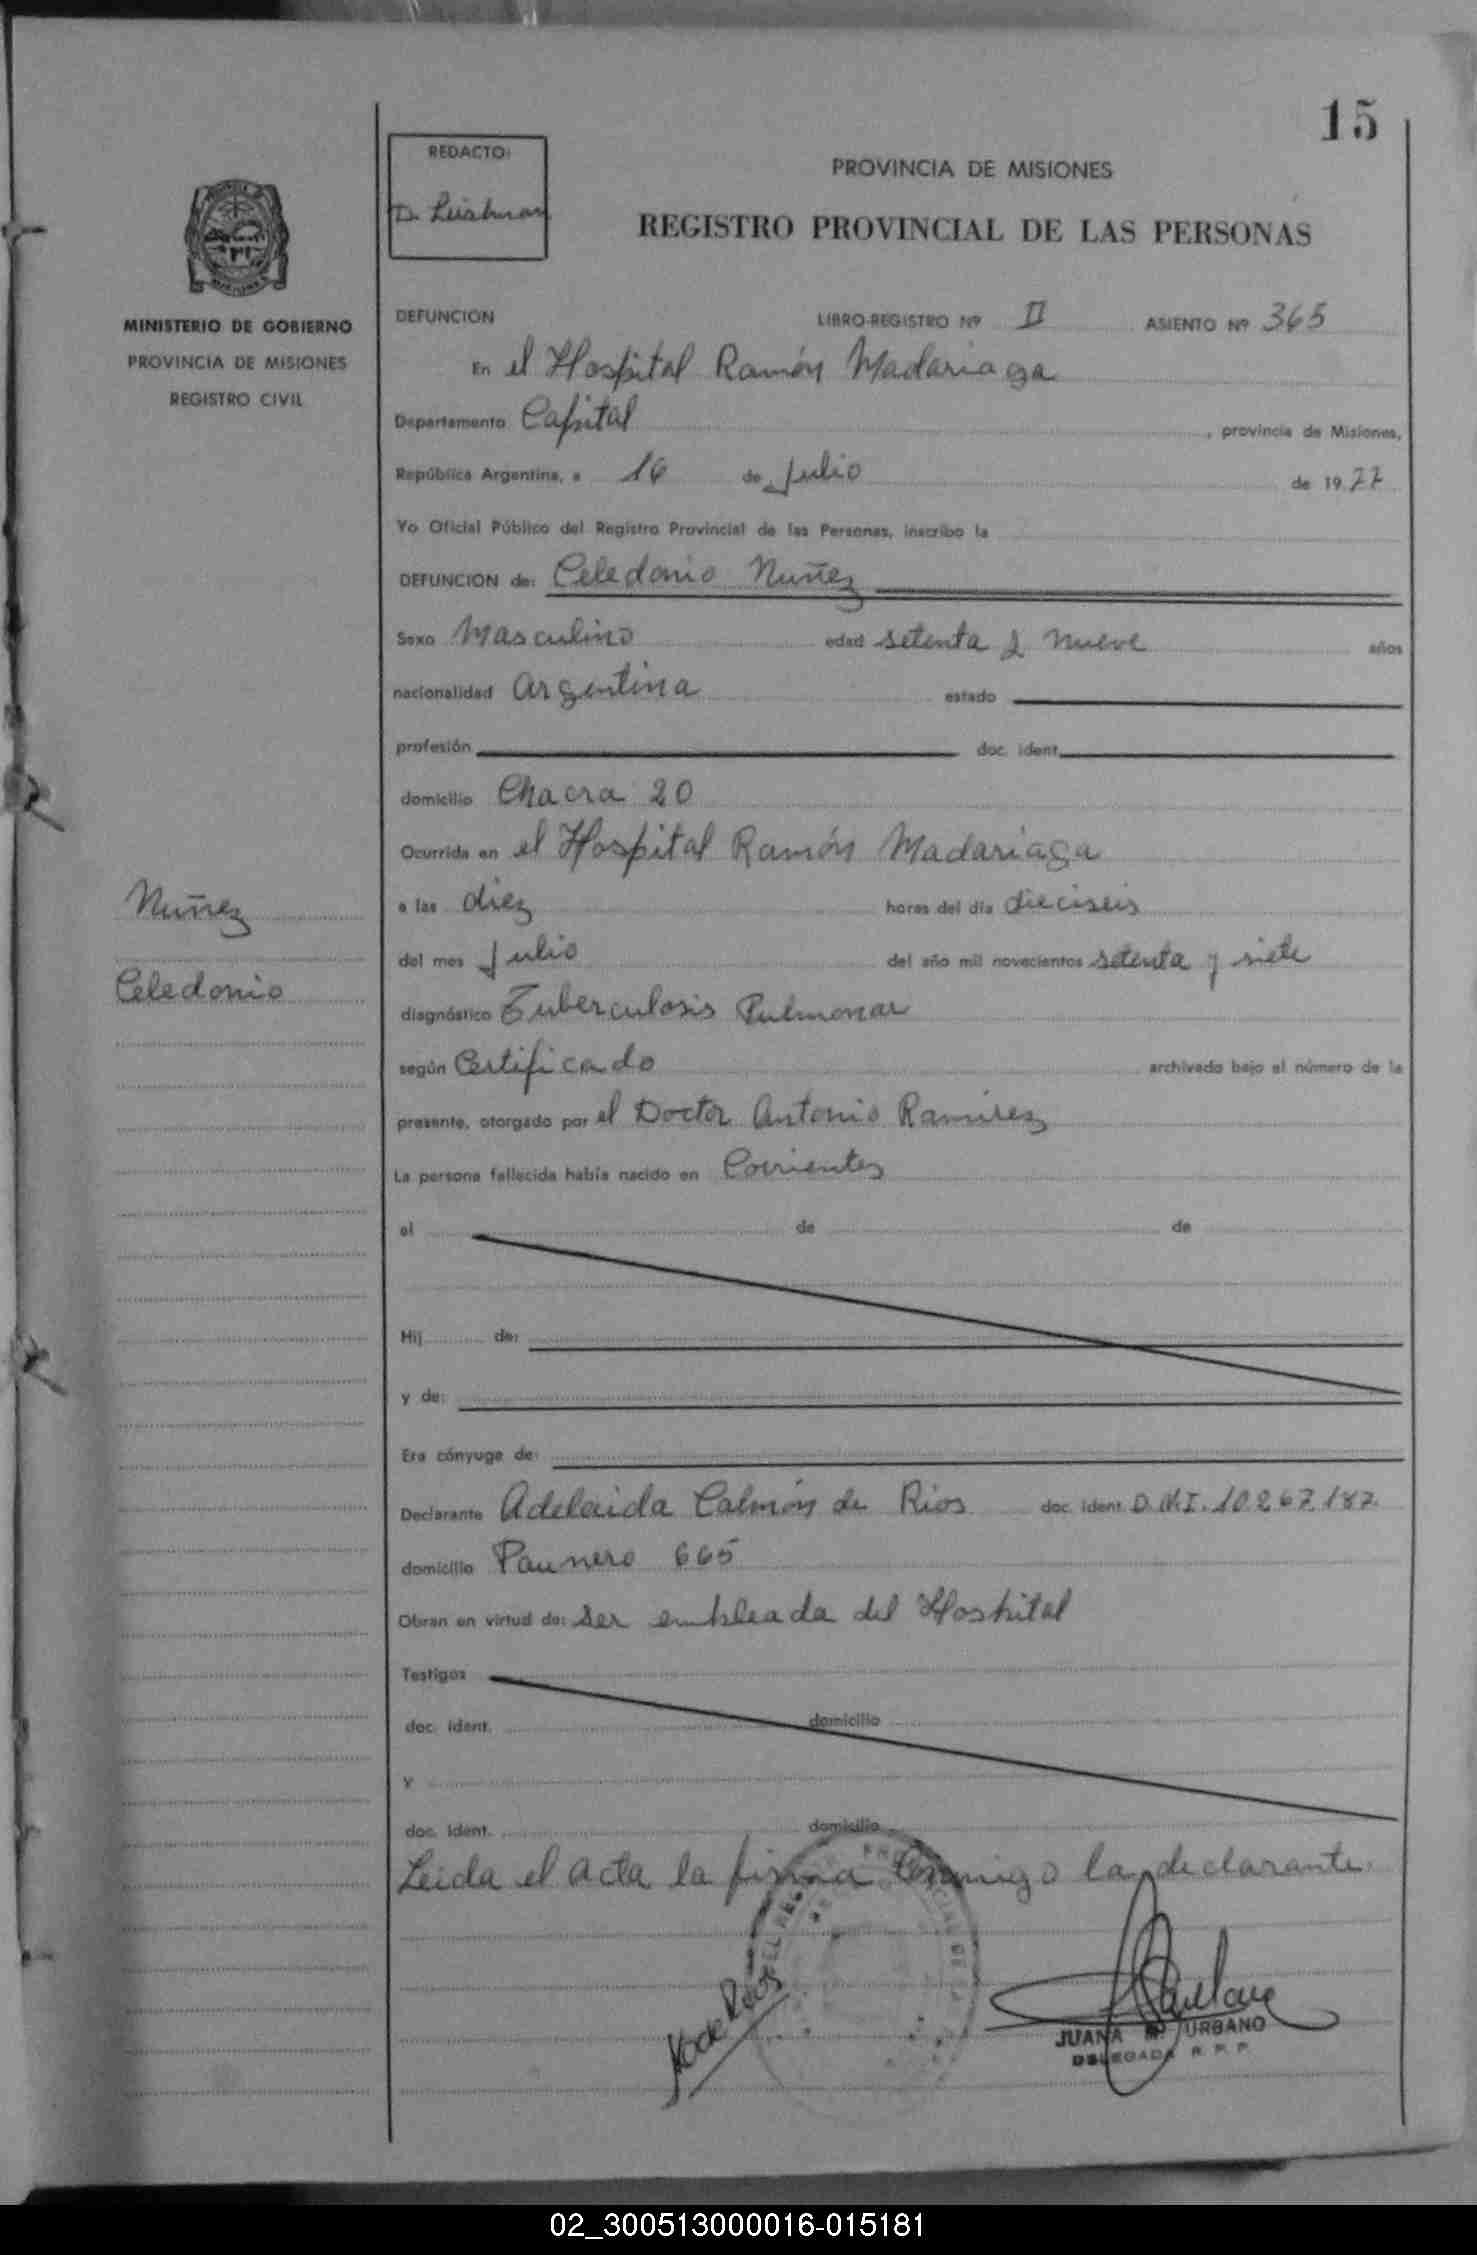 15
REDACTO:
PROVINCIA DE MISIONES
REGISTRO PROVINCIAL DE LAS PERSONAS
MINISTERIO DE GOBIERNO
PROVINCIA DE MISIONES
REGISTRO CIVIL
DEFUNCION LIBRO-REGISTRO Nº II ASIENTO Nº 365
En el Hospital Ramón Madariaga
Departamento Capital, provincia de Misiones,
República Argentina, a 16 de Julio de 1977
Yo Oficial Público del Registro Provincial de las Personas, inscribo la
DEFUNCION de: Celedonio Nuñez
Sexo Masculino edad setenta y nueve años
nacionalidad Argentina estado
profesión doc. ident.
domicilio Chacra 20
Ocurrida en el Hospital Ramón Madariaga
Nuñez
a las diez horas del día dieciseis
del mes Julio del año mil novecientos setenta y siete
Celedonio
diagnóstico Tuberculosis Pulmonar
según Certificado archivado bajo el número de la
presente, otorgado por el Doctor Antonio Ramirez
La persona fallecida había nacido en Corrientes
el de de
Hij de:
y de:
Era cónyuge de:
Declarante Adelaida Calmón de Rios doc. ident. D.N.I. 10.267.187.
domicilio Paunero 665
Obran en virtud de: ser empleada del Hospital
Testigos
doc. ident. domicilio
y
doc. ident. domicilio
Leida el acta la firma conmigo la declarante.
JUANA URBANO
DELEGADA R. P. P.
02_300513000016-015181